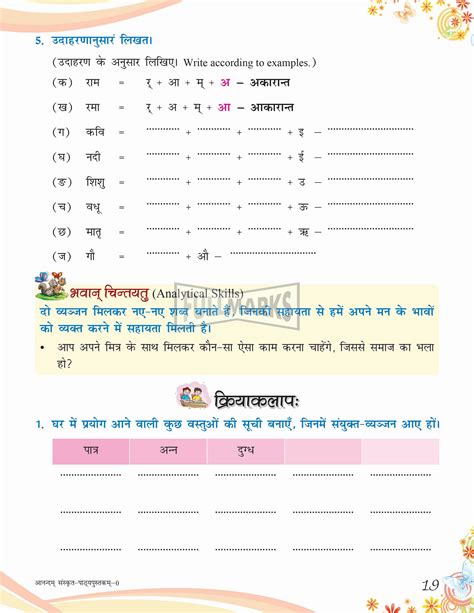 5. उदाहरणानुसारं लिखत।
(उदाहरण के अनुसार लिखिए। Write according to examples.)
(क) राम = र् + आ + म् + अ – अकारान्त
(ख) रमा = र् + अ + म् + आ – आकारान्त
(ग) कवि = .............. + .............. + .............. + इ – ..............
(घ) नदी = .............. + .............. + .............. + ई – ..............
(ङ) शिशु = .............. + .............. + .............. + उ – ..............
(च) वधू = .............. + .............. + .............. + ऊ – ..............
(छ) मातृ = .............. + .............. + .............. + ऋ – ..............
(ज) गौ = .............. + औ – ..............
भवान् चिन्तयतु (Analytical Skills)
FULL MARKS
दो व्यञ्जन मिलकर नए-नए शब्द बनाते हैं, जिनकी सहायता से हमें अपने मन के भावों
को व्यक्त करने में सहायता मिलती है।
• आप अपने मित्र के साथ मिलकर कौन-सा ऐसा काम करना चाहेंगे, जिससे समाज का भला
हो?
क्रियाकलापः
1. घर में प्रयोग आने वाली कुछ वस्तुओं की सूची बनाएँ, जिनमें संयुक्त-व्यञ्जन आए हों।
पात्र अन्न दुग्ध
आनन्दम् संस्कृत-पाठ्यपुस्तकम्-0
19